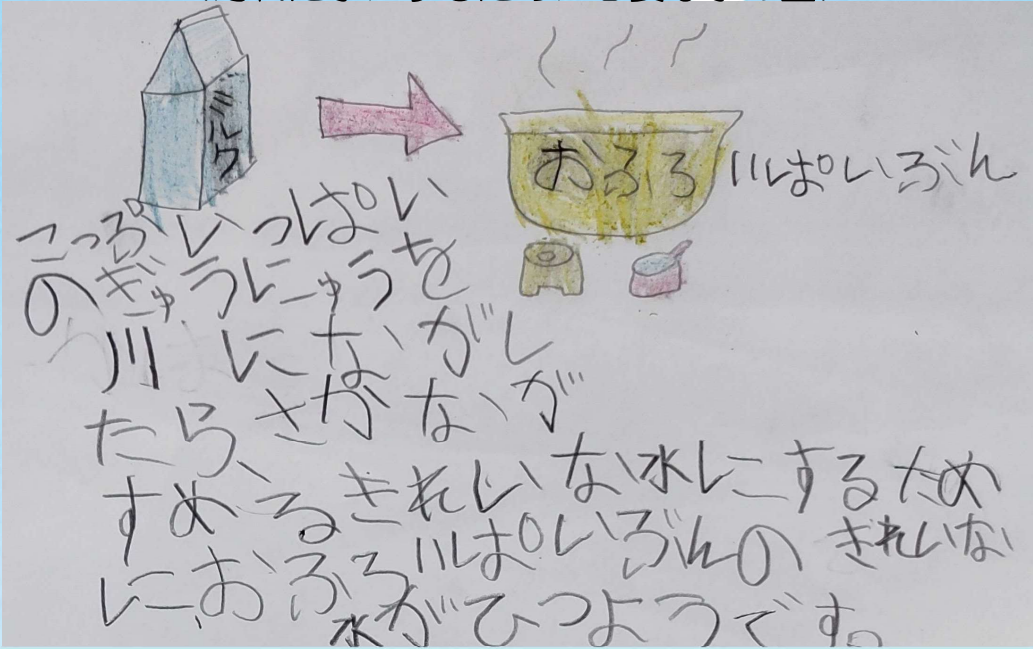 ミルク
おふろ 11ぱいぶん
こっぷいっぱい
のぎゅうにゅうを
川にながし
たらさかなが
すめるきれいな水にするため
におふろ11ぱいぶんのきれいな
水がひつようです。